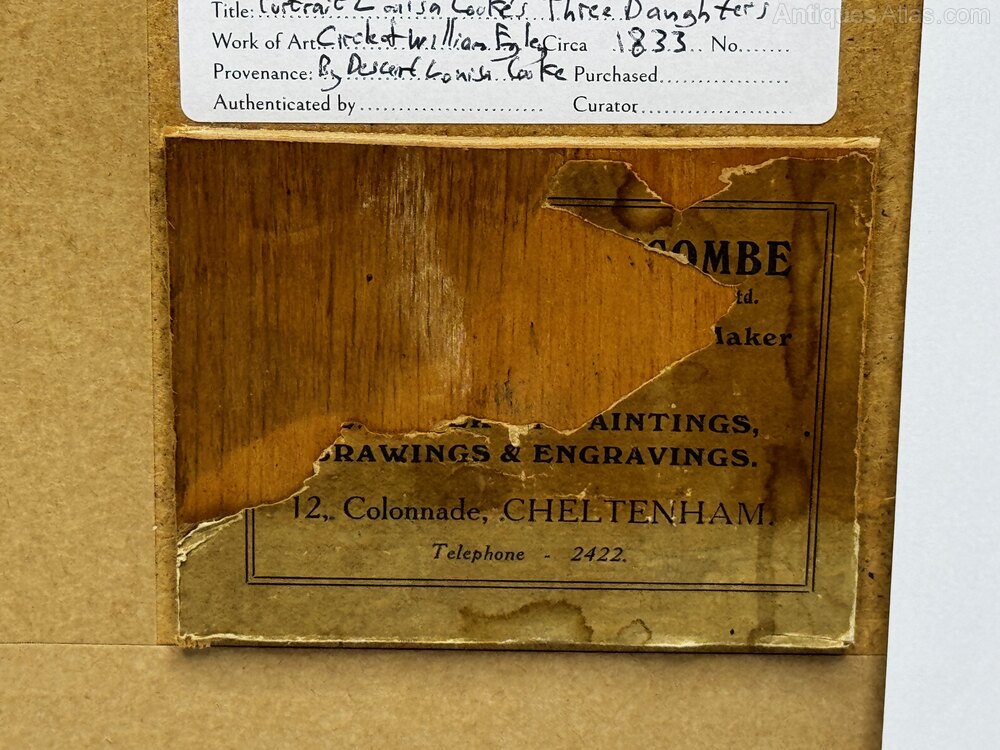 Title: Portrait Louisa Cooke's Three Daughters
AntiquesAtlas.com
Work of Art: Circle of William Egley Circa 1833 No.......
Provenance: By Descent Louisa Cooke Purchased........................
Authenticated by ............................ Curator........................
COMBE
td.
Maker
AINTINGS,
DRAWINGS & ENGRAVINGS.
12, Colonnade, CHELTENHAM.
Telephone - 2422.